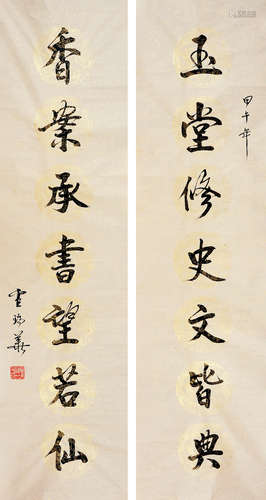 甲午年
玉堂修史文皆典
香案承書望若仙